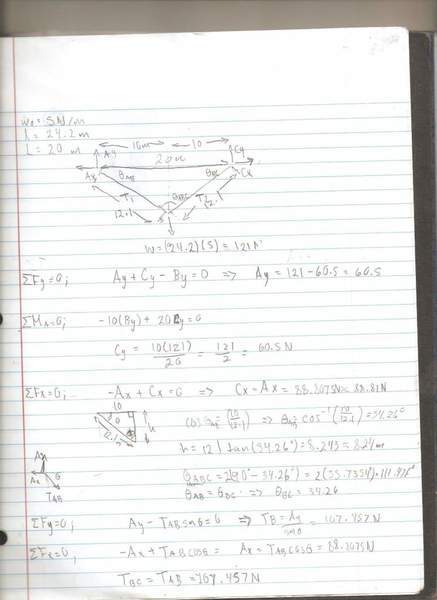 w₀ = 5N/m
l = 24.2m
L = 20 m
10m 10
Ay Cy
20m
Ax θAB θBC Cx
T₁ θABC T₂
12.1 12.1
w = (24.2)(5) = 121N
ΣFy=0; Ay + Cy - By = 0 => Ay = 121 - 60.5 = 60.5
ΣMA=0; -10(By) + 20Cy = 0
Cy = 10(121)/20 = 121/2 = 60.5N
ΣFx=0; -Ax + Cx = 0 => Cx = Ax = 88.8075N ≈ 88.81N
10
θ h
12.1m
cos θAB = (10/12.1) => θAB = cos⁻¹(10/12.1) = 34.26°
tan(34.26°) = 8.24m
Ay
Ax θ
TAB
θABC = 2(90° - 34.26°) = 2(55.7354)
θAB = θBC => θBC = 34.26
ΣFy=0; Ay - TAB sinθ = 0 => Ay/sinθ = 107.457N
ΣFx=0; -Ax + TAB cosθ = Ax = TAB cosθ = 88.8075N
TBC = TAB = 107.457N